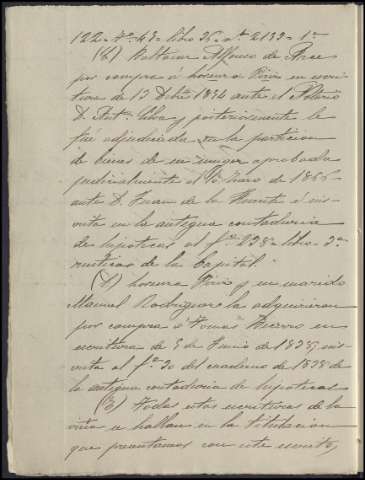 122 - nº 43 - libro 36 - nº 2133 - 1ª
(6) Baltasar Alfonso de Arce
por compra a Lorenza Pirio en escri
tura de 13 Dbre 1834 ante el Notario
D. Antº Silva y posteriormente le
fué adjudicada en la particion
de bienes de su muger aprobada
judicialmente el 15 Enero de 1866
ante D. Juan de la Fuente é ins
crita en la antigua contaduria
de hipotecas al fº 238 - libro - 3º
rusticas de la Capital.
(7) Lorenza Pirio y su marido
Manuel Rodriguez la adquirieron
por compra á Tomas Bierro en
escritura de 5 de Junio de 1828, ins
crita al fº 20 del cuaderno de 1828 de
la antigua contaduria de hipotecas
(8) Todas estas escrituras de la
se hallan en la titulacion
que presentamos con este escrito,